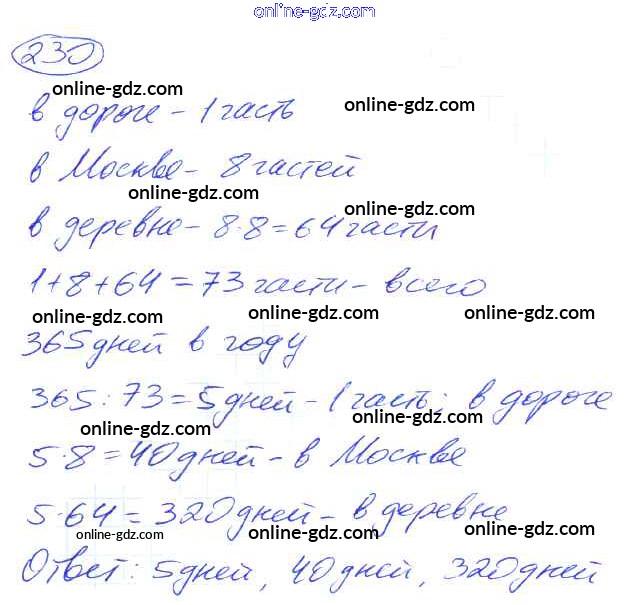 online-gdz.com
230
online-gdz.com
online-gdz.com
в дороге - 1 часть
в Москве - 8 частей
online-gdz.com
online-gdz.com
в деревне - 8·8=64 части
1+8+64=73 части - всего
online-gdz.com
online-gdz.com
online-gdz.com
365 дней в году
365:73=5 дней - 1 часть; в дороге
online-gdz.com
online-gdz.com
5·8=40 дней - в Москве
5·64=320 дней - в деревне
online-gdz.com
online-gdz.com
online-gdz.com
Ответ: 5 дней, 40 дней, 320 дней